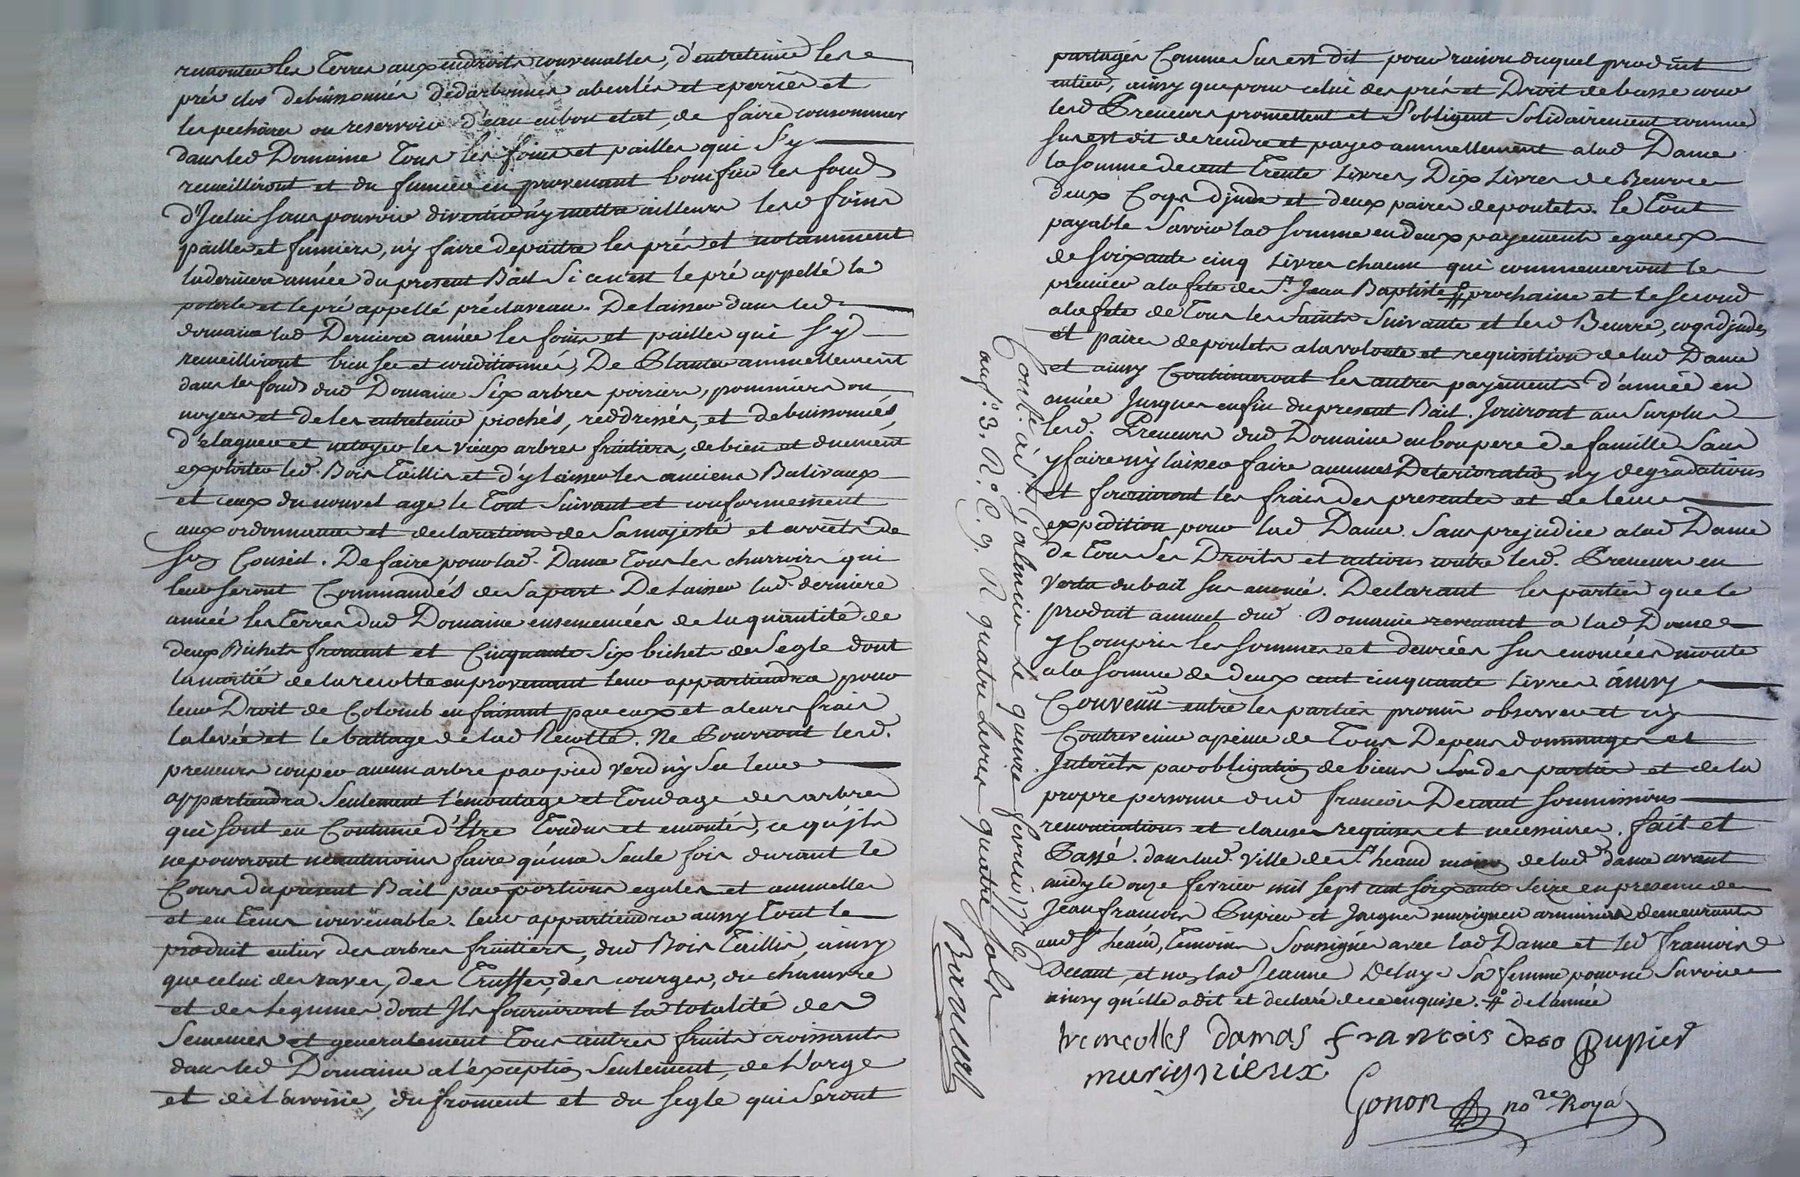 remonter les Terres aux endroits convenables, d'entretenir les
prés clos debuissonnés dédarbonnés abeurlés et eperriés et
les pechoires ou reservoir d'eau en bon etat, de faire consommer
dans led Domaine Tous les foins et pailles qui S'y
recueilliront et du fumier en provenant bonifier les fonds
d'Jcelui sans pouvoir divertir ny mettre ailleurs lesd foins
paille et fumiers, ny faire depaitre les prés et notamment
laderniere année du present Bail Si cen'est le pré appellé la
et le pré appellé pré claveau. Delaisser dans led
domaine lad Derniere année les foins et pailles qui S'y
recueilliront bien sec et conditionnés, De Planter annuellement
dans les fonds dud Domaine Six arbres poiriers, pommiers ou
noyers et de les entretenir piochés, réddressés, et debuissonnés,
d'elaguer et nétoyer les vieux arbres fruitiers, de bien et duement
exploiter led. Bois Taillis et d'y laisser les anciens Balivaux
et ceux du nouvel age le Tout Suivant et conformement
aux ordonnances et declaration de Sa majesté et arrets de
Son Conseil. De faire pour lad. Dame Tous les charrois qui
leur seront Commandés de Sa part Delaisser lad. derniere
année les Terres dud Domaine ensemencées de la quantité de
deux Bichets froment et Cinquante Six bichets de Segle dont
la moitié de la recolte en provenant leur appartiendra pour
leur Droit de Colomb en faisant par eux et a leurs frais
la levée et le battage de lad Recolte. Ne Pourront lesd.
preneurs couper aucun arbre par pied verd ny Sec leur
appartiendra Seulement l'emoutage et Tondage des arbres
qui sont en Coutume d'Etre Tondus et emoutés, ce qu'jls
ne pourront néantmoins faire qu'une Seule fois durant le
Cours du present Bail par portions egales et annuelles
et en Tems convenable. leur appartiendra aussy Tout le
produit entier des arbres fruitiers, dud Bois Taillis, ainsy
que celui des raves, des Truffes, des courges, du chanvre
et des legumes dont Jls fourniront la totalité des
Semences et generalement Tous autres fruits croissants
dans led Domaine a l'exception Seulement, de L'orge
et de L'avoine, du froment et du Segle qui Seront
partagés Comme Sus est dit pour raison duquel produit
entier, ainsy que pour celui des prés et Droit de basse cour
lesd Preneurs promettent et S'obligent Solidairement comme
Sus est dit de rendre et payer annuellement a lad Dame
la somme de cent Trente Livres, Dix Livres de Beurre
deux Coqs d'jnde et deux paires de poulets. le Tout
payable Savoir lad Somme en deux payements egaux
de soixante cinq Livres chacun qui commenceront le
premier a la fete de St Jean Baptiste prochaine et le Second
a la fete de Tous les Saints Suivante et lesd Beurre, coqs d'jndes
et paires de poulets a la volonté et requisition de lad Dame
et ainsy Continueront les autres payements d'année en
année Jusques enfin du present Bail. Jouiront au Surplus
lesd. Preneurs dud Domaine en bon pere de famille Sans
y faire ny laisser faire aucunes Deteriorations ny degradations
et fourniront les frais des presentes et de leur
expedition pour lad Dame. Sans prejudice a lad Dame
de Tous Ses Droits et actions contre lesd. Preneurs en
vertu du bail Sus enoncé. Declarant les parties que le
produit annuel dud Domaine revenant a lad Dame
y Compris les sommes et denrées Sus enoncées monte
a la Somme de deux cent cinquante Livres ainsy
Convenu entre les parties promis observer et ny
Contrevenir a peine de Tous Depens dommages et
Jnterets par obligation de biens des parties et de la
propre personne dud francois Decaut Soumissions
renonciations et clauses requises et necessaires. fait et
Passé. dans lad. ville de St heand de lad. dame avant
midy le onze fevrier mil sept cent soixante Seize en presence de
Jean francois Pupier et Jacques murigneu armurier demeurants
aud St heand, Temoins Soussignés avec lad Dame et led francois
Decaut, et non lad Jeanne Sa femme pour ne Savoir
ainsy qu'elle a dit et declaré de ce enquise. de l'année
tremeolles damas francois deco Pupier
murignieux
Gonon nore Roya
Contlé à St Galmier Le quinze fevrier 1776
Rº quatre Livres quatre Sols